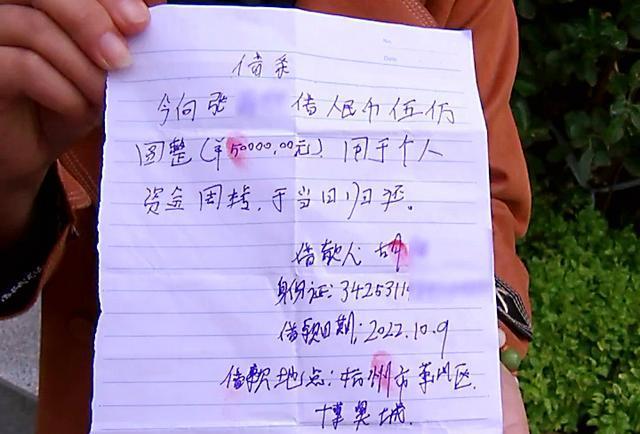 No.
Date
借条
今向张 借人民币伍
圆整(¥50000.00元)用于个人
资金周转,于当日归还。
借款人 胡
身份证:3425311
借款日期:2022.10.9
借款地点:杭州市萧山区.
博奥城